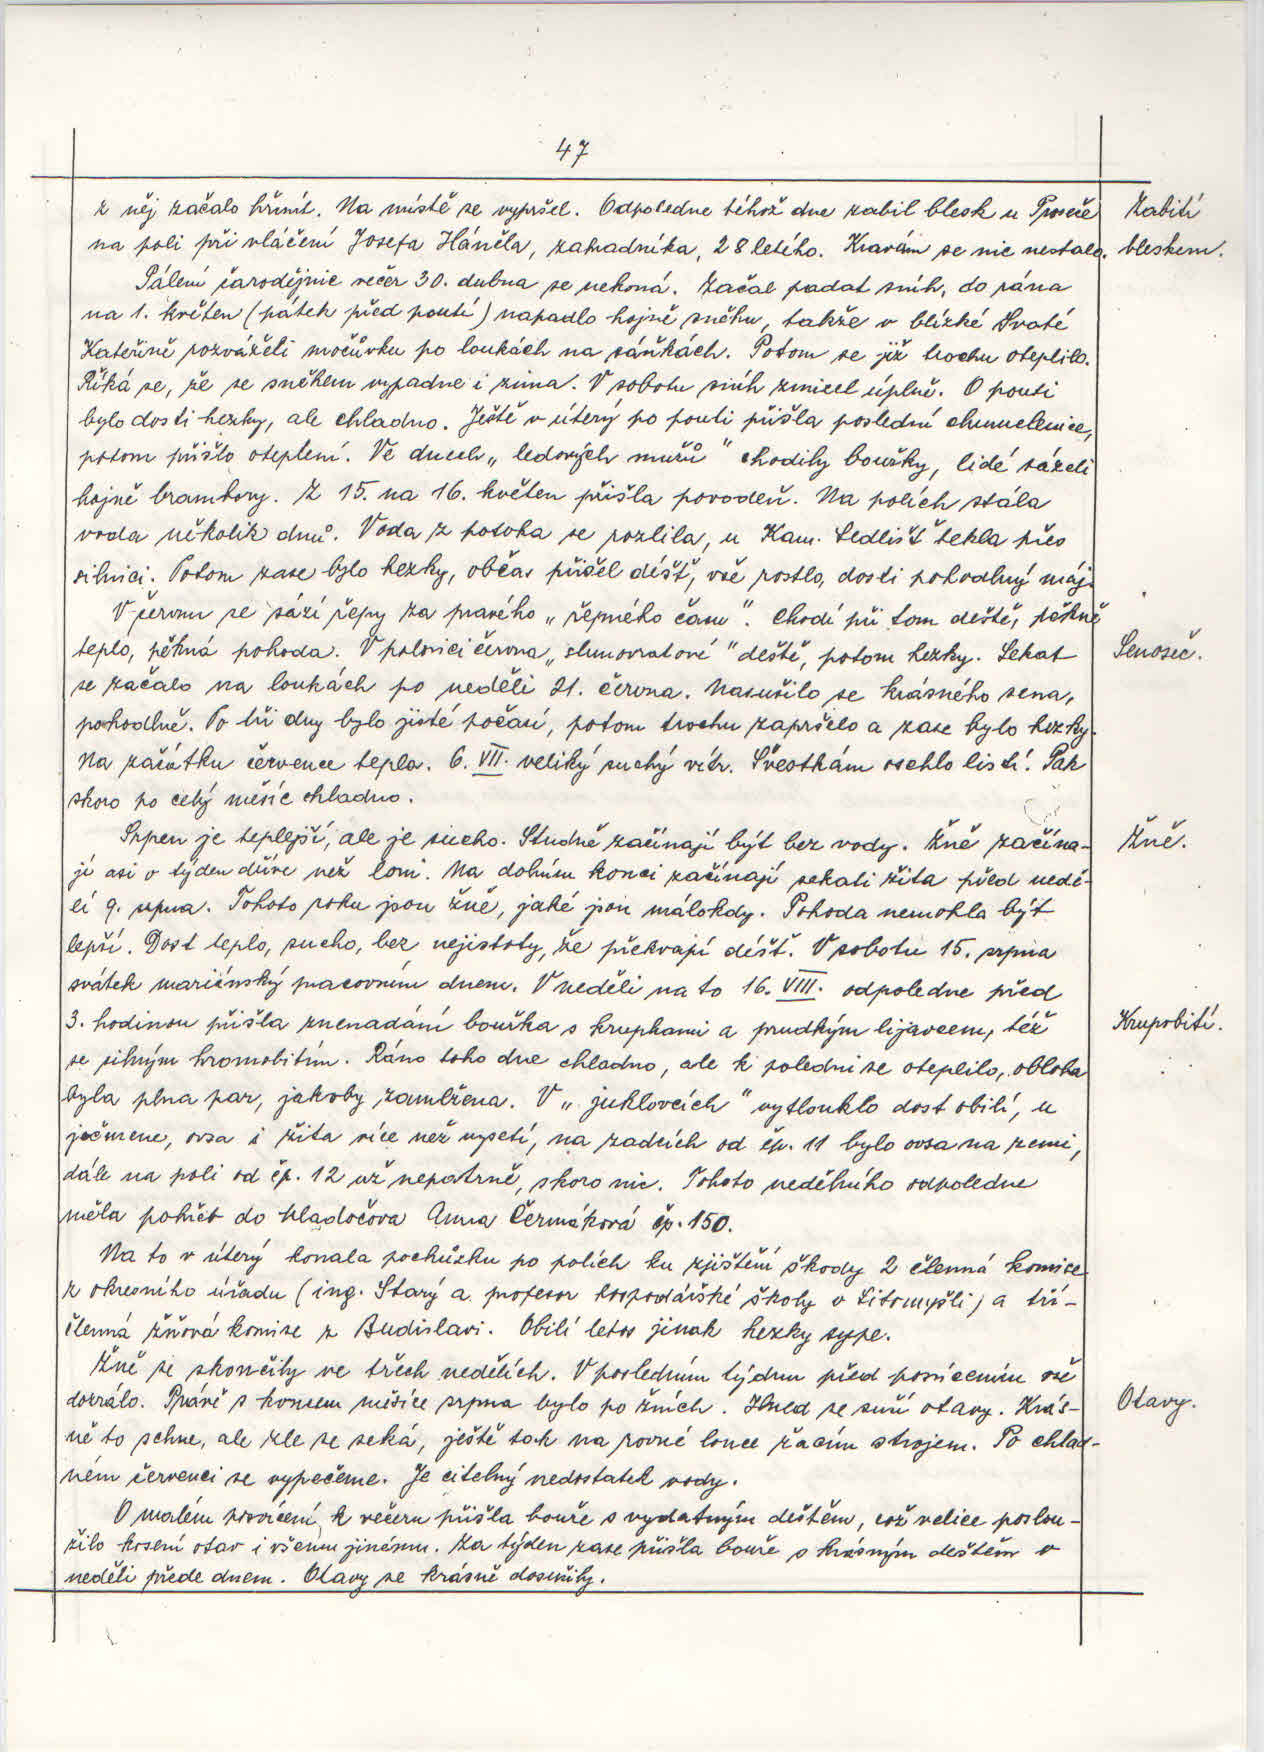 47
z něj začalo hřmít. Na místě se vypršel. Odpoledne téhož dne zabil blesk u Proseče
Zabití
na poli při vláčení Josefa Háněla, zahradníka, 28 letého. Kravám se nic nestalo.
bleskem.
Pálení čarodějnic večer 30. dubna se nekoná. Začal padat sníh, do rána
na 1. květen (pátek před poutí) napadlo hojně sněhu, takže v blízké Svaté
Kateřině rozváželi močůvku po loukách na sáňkách. Potom se již trochu oteplilo.
Říká se, že se sněhem vypadne i zima. V sobotu sníh zmizel úplně. O pouti
bylo dosti hezky, ale chladno. Ještě v úterý po pouti přišla poslední chumelenice,
potom přišlo oteplení. Ve dnech „ledových mužů" chodily bouřky, lidé sázeli
hojně brambory. Z 15. na 16. květen přišla povodeň. Na polích stála
voda několik dnů. Voda z potoka se rozlila, u Kam. Sedlišť tekla přes
silnici. Potom zase bylo hezky, občas přišel déšť, vše rostlo, dosti pohodlný máj.
V červnu se sází řepy za pravého „řepného času". Chodí při tom deště, pěkně
teplo, pěkná pohoda. V polovici června „slunovratové" deště, potom hezky. Sekat
Senoseč.
se začalo na loukách po neděli 21. června. Nasušilo se krásného sena,
pohodlně. Po tři dny bylo jisté počasí, potom trochu zapršelo a zase bylo hezky.
Na začátku července teplo. 6. VII. veliký suchý vítr. Švestkám oschlo listí. Pak
skoro po celý měsíc chladno.
Srpen je teplejší, ale je sucho. Studně začínají být bez vody. Žně začína-
Žně.
jí asi o týden dříve než loni. Na dolním konci začínají sekati žita před nedě-
lí 9. srpna. Tohoto roku jsou žně, jaké jsou málokdy. Pohoda nemohla být
lepší. Dost teplo, sucho, bez nejistoty, že překvapí déšť. V sobotu 15. srpna
svátek mariánský pracovním dnem. V neděli na to 16. VIII. odpoledne před
3. hodinou přišla znenadání bouřka s kroupkami a prudkým lijavcem, též
Krupobití.
se silným hromobitím. Ráno toho dne chladno, ale k poledni se oteplilo, obloha
byla plna par, jakoby zamlžena. V „juklovcích" vytlouklo dost obilí, u
ječmene, ovsa i žita více než vysetí, na zadcích od čp. 11 bylo ovsa na zemi,
dále na poli od čp. 12 už nepatrně, skoro nic. Tohoto nedělního odpoledne
měla pohřeb do Hladočova Anna Čermáková čp. 150.
Na to v úterý konala pochůzku po polích ku zjištění škody 2 členná komise
z okresního úřadu (ing. Starý a profesor hospodářské školy v Litomyšli) a tří-
členná žňová komise z Budislavi. Obilí letos jinak hezky sype.
Žně se skončily ve třech nedělích. V posledním týdnu před posvícením vše
dozrálo. Právě s koncem měsíce srpna bylo po žních. Hned se suší otavy. Krás-
Otavy.
ně to schne, ale zle se seká, ještě tak na rovné louce žacím strojem. Po chlad-
ném červenci se vypečeme. Je citelný nedostatek vody.
O malém posvícení k večeru přišla bouře s vydatným deštěm, což velice poslou-
žilo kosení otav i všemu jinému. Za týden zase přišla bouře s krásným deštěm v
neděli přede dnem. Otavy se krásně dosušily.